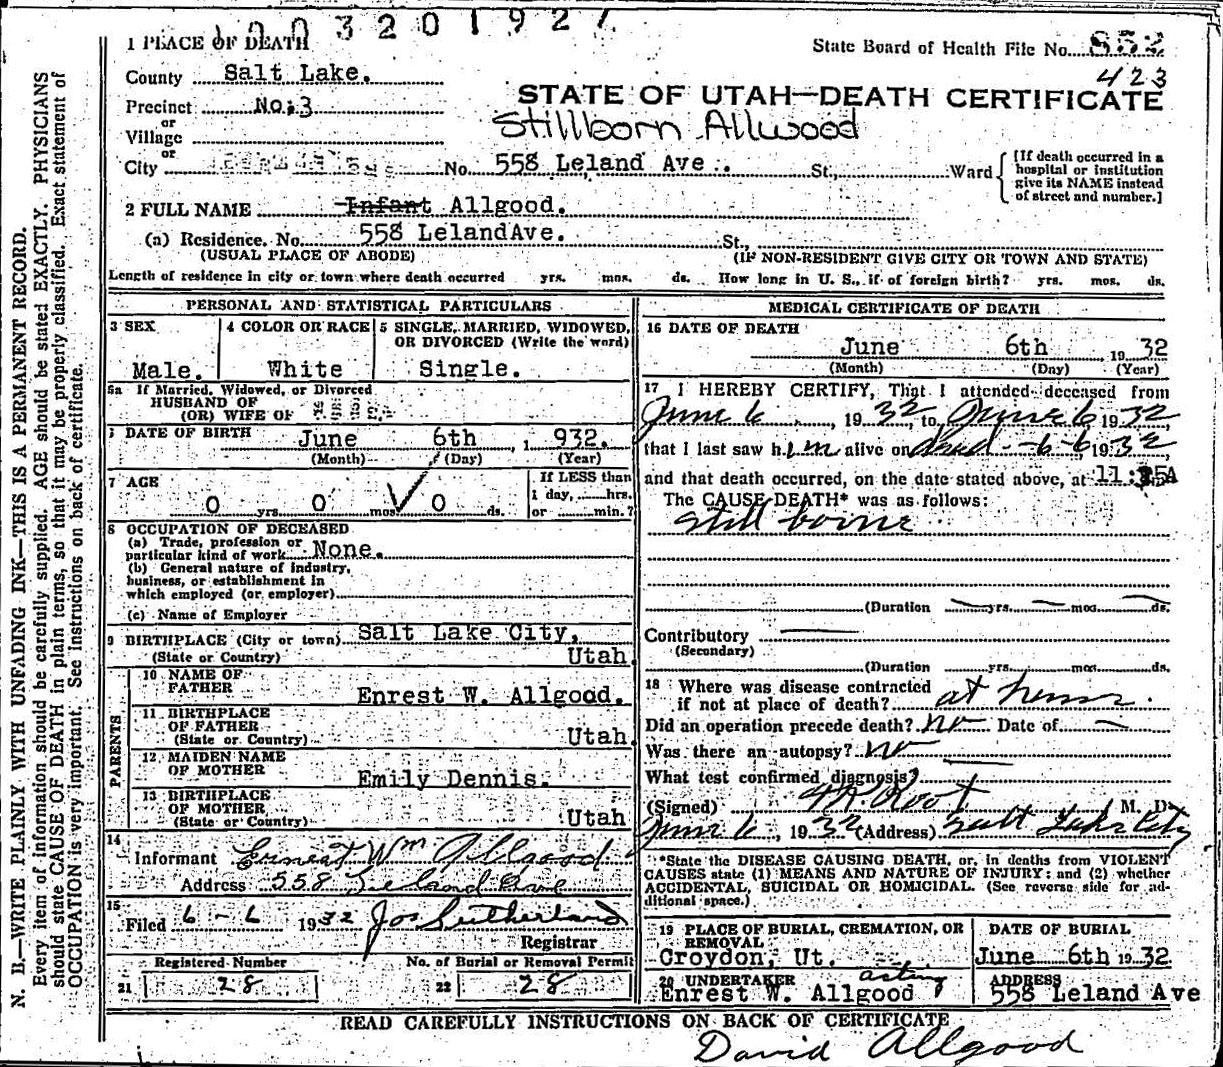 3 2 0 1 9 2 7
1 PLACE OF DEATH
State Board of Health File No. 852
423
County Salt Lake.
Precinct No. 3
or
Village
or
City
STATE OF UTAH—DEATH CERTIFICATE
Stillborn Allwood
No. 558 Leland Ave. St., Ward
[If death occurred in a
hospital or institution
give its NAME instead
of street and number.]
2 FULL NAME Infant Allgood.
(a) Residence. No. 558 Leland Ave. St.,
(USUAL PLACE OF ABODE) (IF NON-RESIDENT GIVE CITY OR TOWN AND STATE)
Length of residence in city or town where death occurred yrs. mos. ds. How long in U. S., if of foreign birth? yrs. mos. ds.
PERSONAL AND STATISTICAL PARTICULARS
3 SEX
Male.
4 COLOR OR RACE
White
5 SINGLE, MARRIED, WIDOWED,
OR DIVORCED (Write the word)
Single.
5a If Married, Widowed, or Divorced
HUSBAND OF
(OR) WIFE OF
DATE OF BIRTH June 6th, 1 932.
(Month) (Day) (Year)
7 AGE
0 yrs. 0 mos. 0 ds.
If LESS than
1 day, hrs.
or min.?
8 OCCUPATION OF DECEASED
(a) Trade, profession or
particular kind of work None.
(b) General nature of industry,
business, or establishment in
which employed (or employer)
(c) Name of Employer
9 BIRTHPLACE (City or town) Salt Lake City,
(State or Country) Utah.
PARENTS
10 NAME OF
FATHER Enrest W. Allgood.
11 BIRTHPLACE
OF FATHER
(State or Country) Utah.
12 MAIDEN NAME
OF MOTHER Emily Dennis.
13 BIRTHPLACE
OF MOTHER
(State or Country) Utah
14
Informant Ernest Wm Allgood
Address 558 Leland Ave
15
Filed 6 - 6 1932 Jos Sutherland
Registrar
Registered Number No. of Burial or Removal Permit
21 28 22 28
MEDICAL CERTIFICATE OF DEATH
16 DATE OF DEATH
June 6th 19 32
(Month) (Day) (Year)
17 I HEREBY CERTIFY, That I attended deceased from
June 6, 19 32, to June 6 19 32
that I last saw him alive on dead - 6-6 19 32,
and that death occurred, on the date stated above, at 11: A
The CAUSE DEATH* was as follows:
Still borne
(Duration yrs. mos. ds.
Contributory
(Secondary)
(Duration yrs. mos. ds.
18 Where was disease contracted
if not at place of death? at home.
Did an operation precede death? no Date of
Was there an autopsy? no
What test confirmed diagnosis?
(Signed) Root M. D.
June 6, 19 32 (Address) Salt Lake City
*State the DISEASE CAUSING DEATH, or, in deaths from VIOLENT
CAUSES state (1) MEANS AND NATURE OF INJURY; and (2) whether
ACCIDENTAL, SUICIDAL OR HOMICIDAL. (See reverse side for ad-
ditional space.)
19 PLACE OF BURIAL, CREMATION, OR
REMOVAL
Croydon, Ut.
DATE OF BURIAL
June 6th 19 32
20 UNDERTAKER acting
Enrest W. Allgood
ADDRESS
558 Leland Ave
READ CAREFULLY INSTRUCTIONS ON BACK OF CERTIFICATE
David Allgood
N. B.—WRITE PLAINLY WITH UNFADING INK—THIS IS A PERMANENT RECORD.
Every item of information should be carefully supplied. AGE should be stated EXACTLY. PHYSICIANS
should state CAUSE OF DEATH in plain terms, so that it may be properly classified. Exact statement of
OCCUPATION is very important. See instructions on back of certificate.